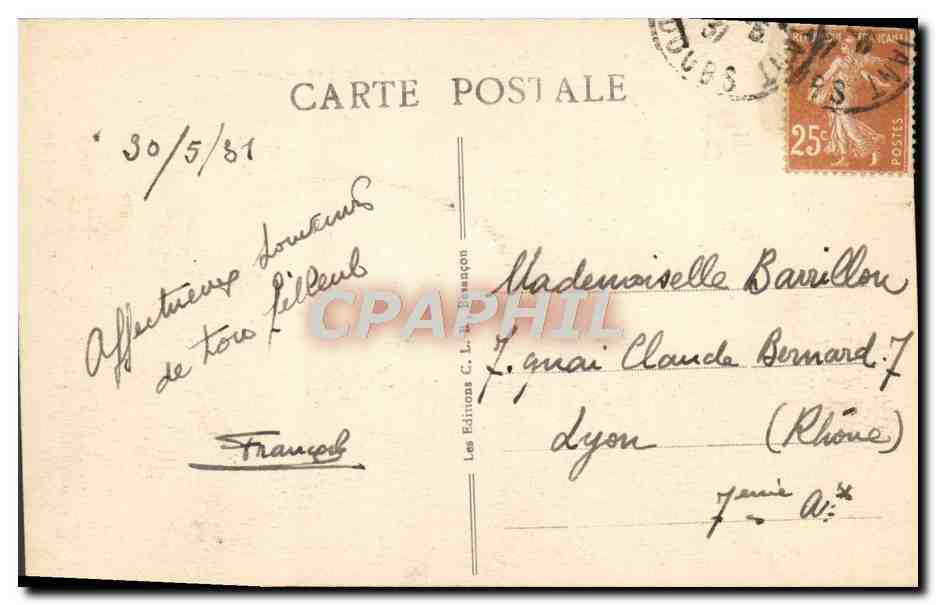 CARTE POSTALE
30/5/31
Affectueux souvenirs
de ton filleul
François
Les Editions C. L. B. Besançon
Mademoiselle Barrillon
7. quai Claude Bernard. 7
Lyon (Rhône)
7eme Ax
FRANÇAISE
25c
POSTES
31
DOUBS
CPAPHIL